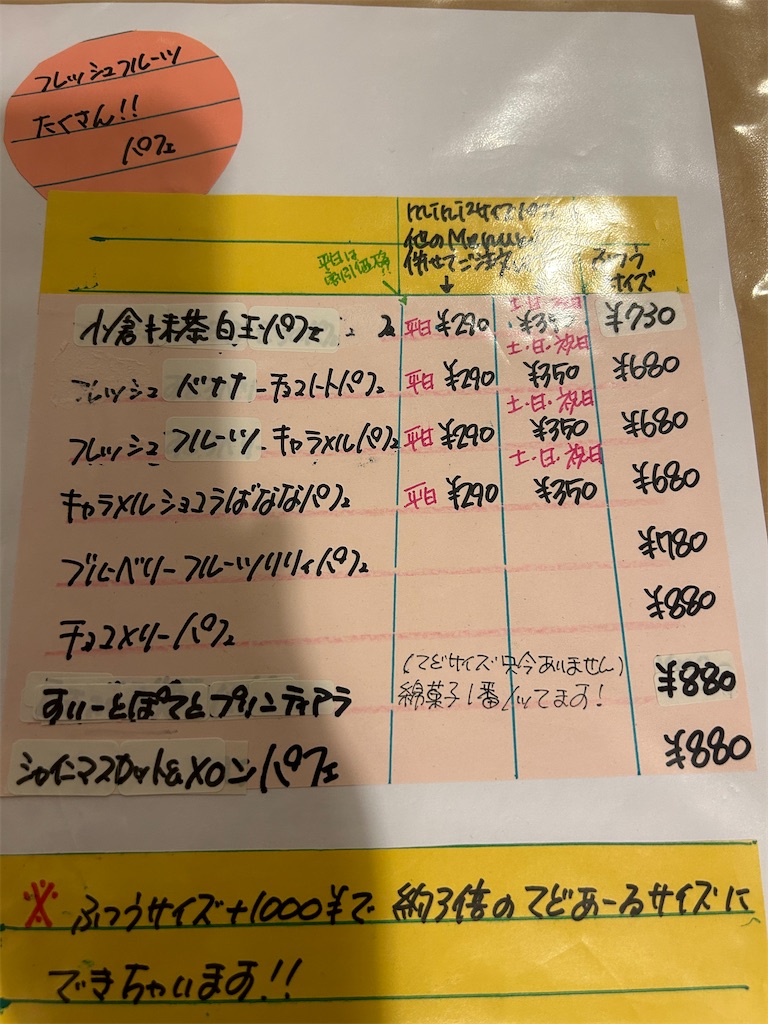 フレッシュフルーツ
たくさん!!
パフェ
miniサイズパフェ
他のMenuと
併せてご注文
平日は
割引価格!!
ふつう
サイズ
小倉抹茶白玉パフェ 平日 ¥290 土・日・祝日 ¥350 ¥730
フレッシュバナナーチョコレートパフェ 平日 ¥290 土・日・祝日 ¥350 ¥680
フレッシュフルーツ・キャラメルパフェ 平日 ¥290 土・日・祝日 ¥350 ¥680
キャラメルショコラばななパフェ 平日 ¥290 土・日・祝日 ¥350 ¥680
ブルーベリーフルーツリリィパフェ ¥780
チョコメリーパフェ ¥880
すいーとぽてとプリンティアラ (てどサイズ只今ありません) ¥880
綿菓子1番ノッてます!
シャインマスカット&メロンパフェ ¥880
※ふつうサイズ+1000¥で約3倍のてどあーるサイズに
できちゃいます!!